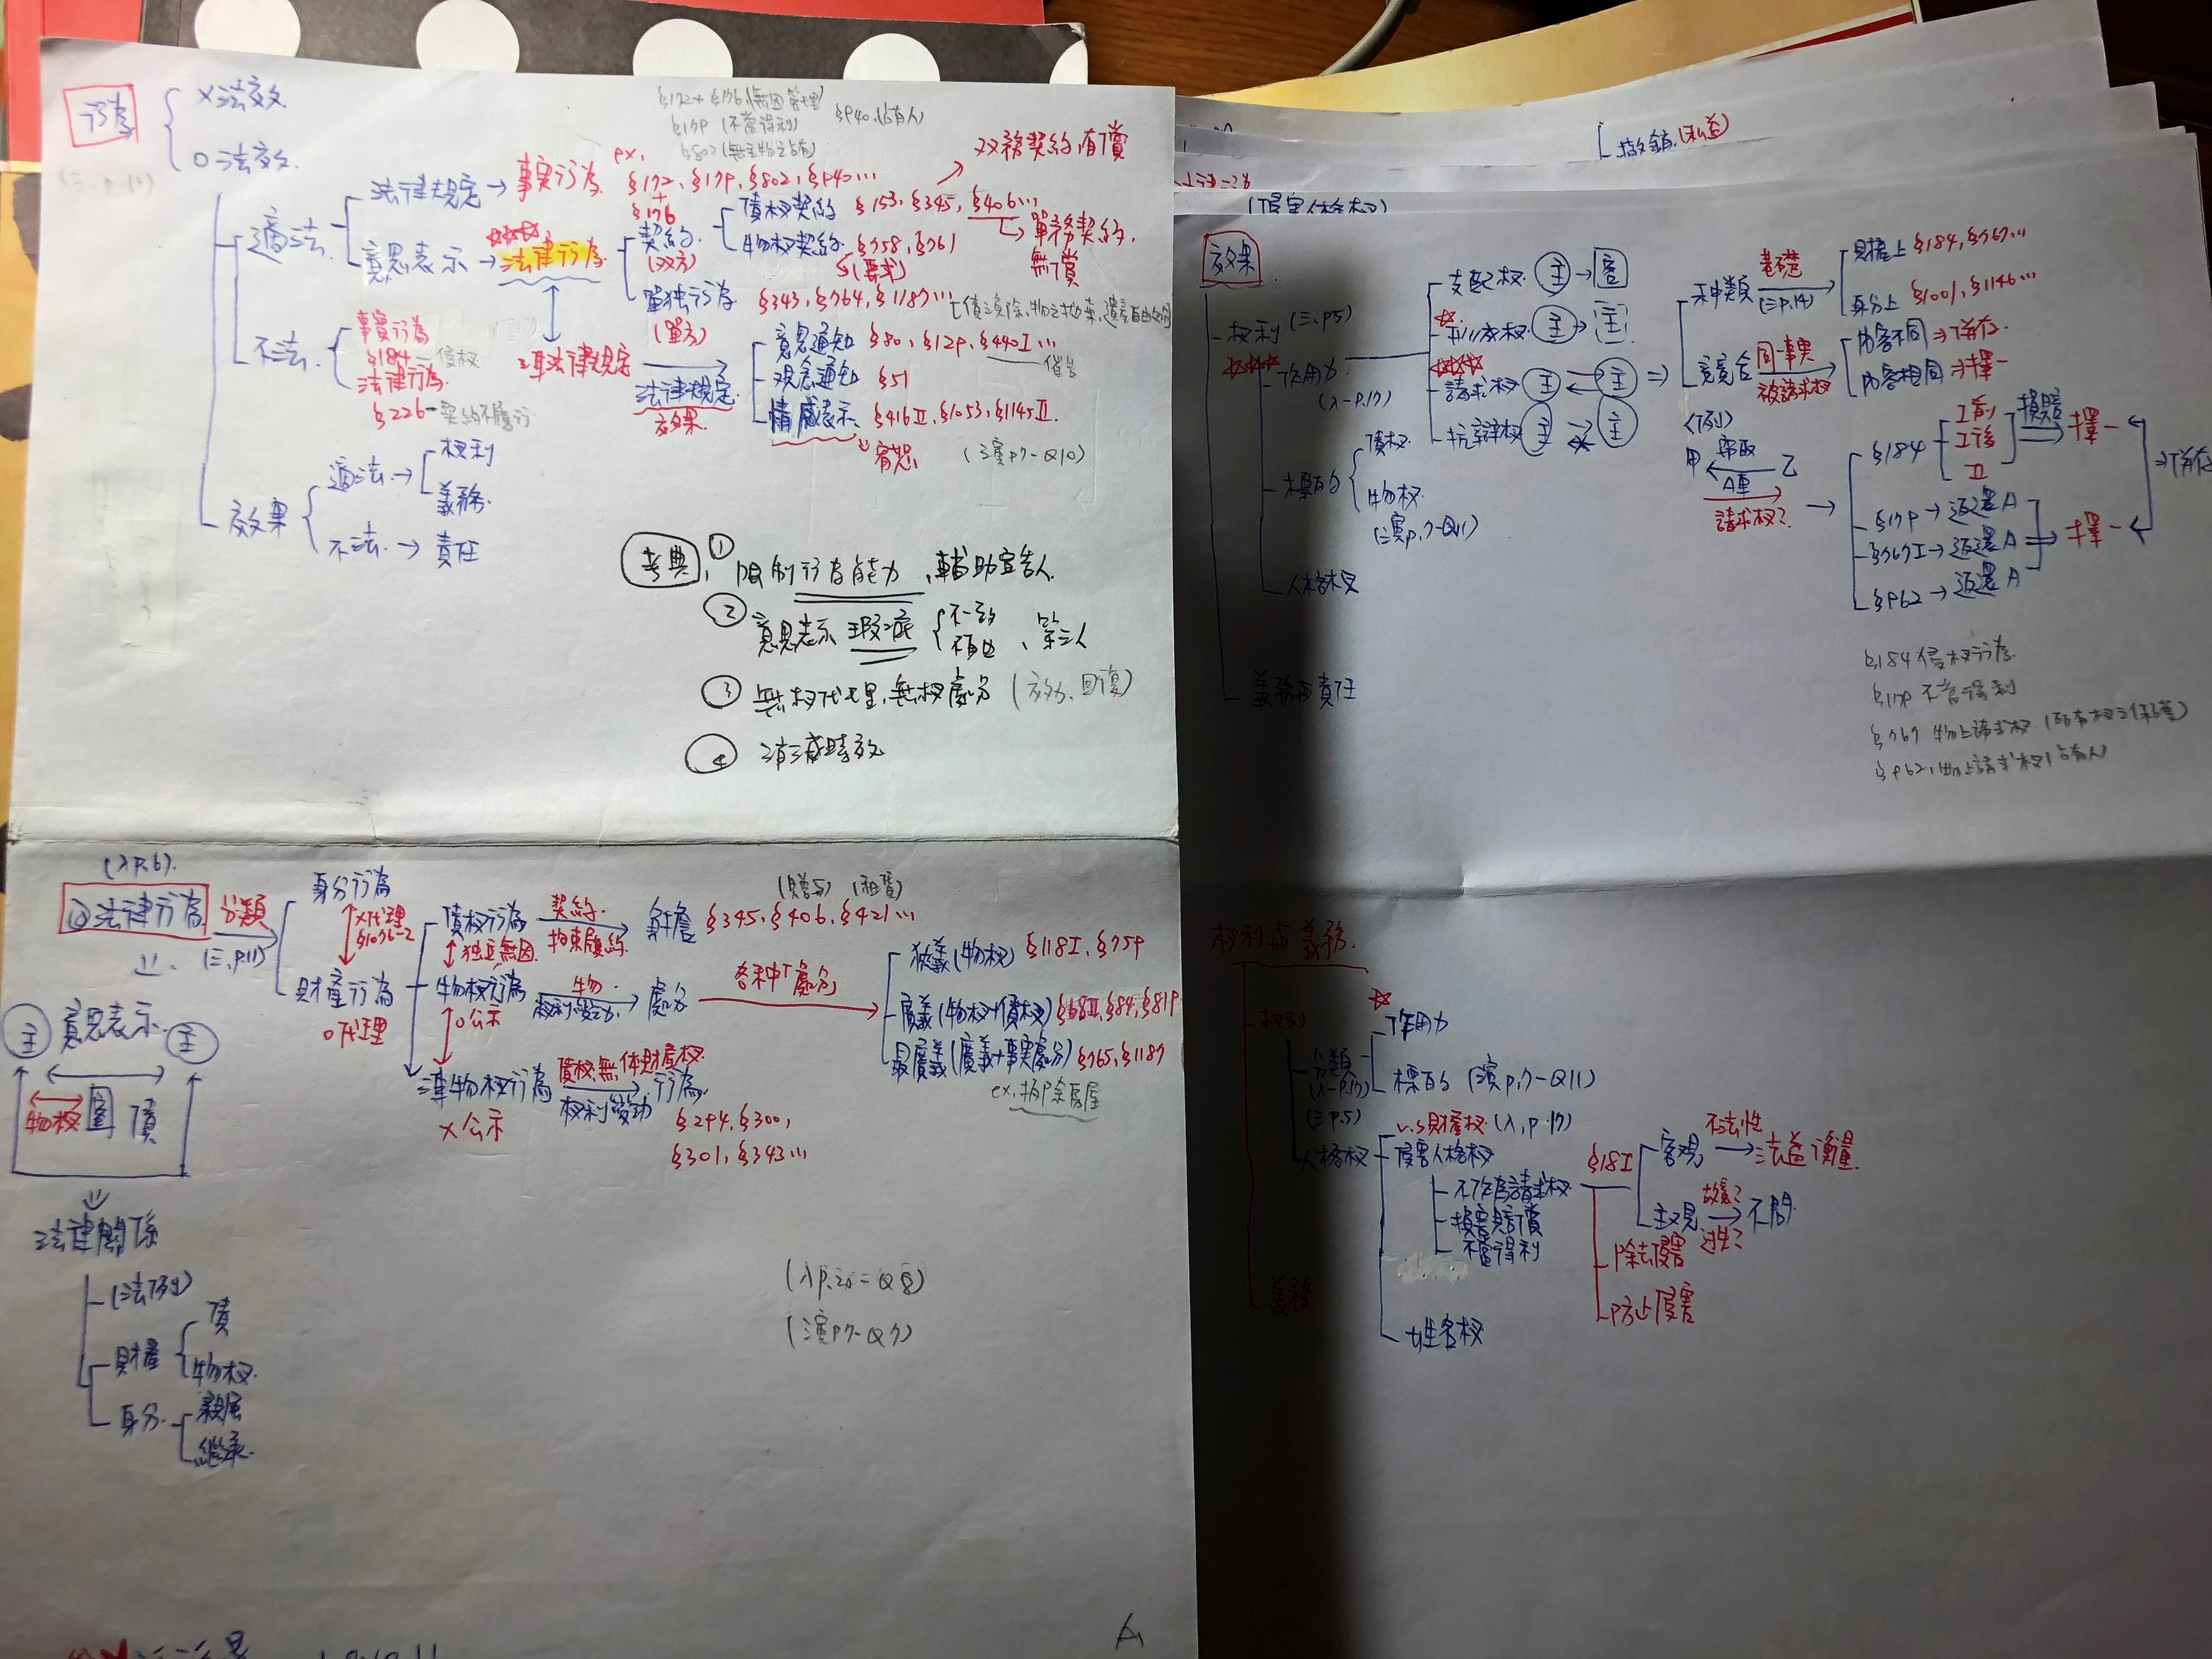 行為
×法效
○法效
(三、p.11)
§172+§176(無因管理)
§179(不當得利)
§940(占有人)
§802(無主物之占有)
適法
法律規定→事實行為
ex,
§172、§179、§802、§940…
+
§176
意思表示→法律行為
契約
(双方)
債权契約 §153、§345、§406…
双務契約,有償
單務契約,
無償
物权契約 §758、§761
(要式)
單独行為 §343、§764、§1187…
(單方)
不法
事實行為
§184—侵权
法律行為
§226—契約不履行
準法律規定
法律規定
效果
意思通知 §80、§129、§440I…
催告
观念通知 §51
情感表示 §416Ⅱ、§1053、§1145Ⅱ
宥恕
(演p7-Q10)
效果
適法→
权利
義務
不法→責任
考典,
①限制行為能力、輔助宣告人
②意思表示瑕疵
不一致
不自由
、第三人
③無权代理,無权處分(效力、回復)
④消滅時效
(入p.6)
法律行為
分類
(三、p.11)
身分行為
×代理
§1076-2
財產行為
○代理
債权行為
契約
拘束履約
負擔 §345、§406、§421…
(贈与) (租賃)
独立無因
物权行為
物
权利變動
處分
各種「處分」
狹義(物权) §118I、§759
廣義(物权+債权) §68Ⅱ、§84、§819
最廣義(廣義+事實處分) §765、§1187
ex,拆除房屋
○公示
準物权行為
×公示
債权,無体財產权
权利變動
行為
§294、§300,
§301、§343…
主 意思表示 主
物权 客 債
法律關係
(法例)
財產
債
物权
身分
親屬
繼承
(演p7-Q7)
A
撤銷(私益)
(侵害人格权)
效果
权利(三、p5)
作用力
(入-p.17)
支配权 主→客
形成权 主→主
請求权 主 主
抗辯权 主 主
標的
債权
物权
(演p,7-Q11)
人格权
義務与責任
種類
基礎
(三p.14)
財產上 §184、§767…
身分上 §1001、§1146…
競合
同一事實
被請求权
內容不同→併存
內容相同→擇一
<例>
甲 竊取 乙
A車
請求权?
§184
I前
I後
Ⅱ
損賠
擇一
§179→返還A
§767I→返還A
§962→返還A
擇一
併存
§184侵权行為
§179不當得利
§767物上請求权(所有权之保護)
§962,物上請求权(占有人)
权利与義務
权利
分類
(入-p.17)
(三p.5)
作用力
標的 (演p,7-Q11)
v.s財產权(入,p.17)
人格权
侵害人格权
不作為請求权
損害賠償
不當得利
姓名权
§18I
客观
不法性
法益衡量
主观
故意?
過失?
不問
除去侵害
防止侵害
義務